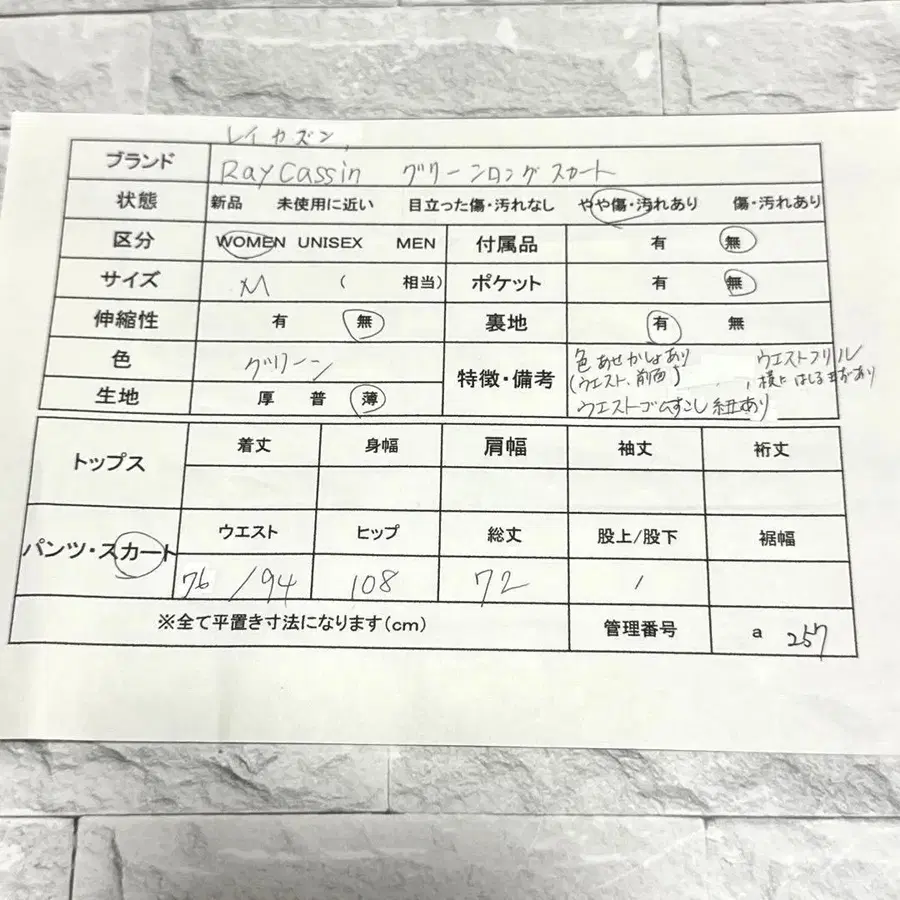 レイカズン,
ブランド RayCassin グリーンロングスカート
状態 新品 未使用に近い 目立った傷・汚れなし やや傷・汚れあり 傷・汚れあり
区分 WOMEN UNISEX MEN 付属品 有 無
サイズ M ( 相当) ポケット 有 無
伸縮性 有 無 裏地 有 無
色 グリーン
生地 厚 普 薄
特徴・備考
色あせかしょあり ウエストフリル
(ウエスト、前面)
ウエストゴムすこし 紐あり
トップス 着丈 身幅 肩幅 袖丈 裄丈
パンツ・スカート ウエスト ヒップ 総丈 股上/股下 裾幅
76/94 108 72 /
※全て平置き寸法になります(cm) 管理番号 a 257